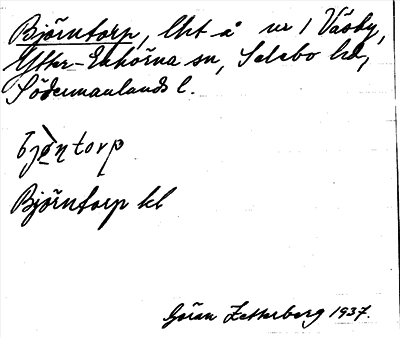 Björntorp, lht å nr 1 Väsby,
Ytter-Enhörna sn, Selebo hd,
Södermanlands l.
bjö̀ntorp
Björntorp kl
Göran Zetterberg 1937.